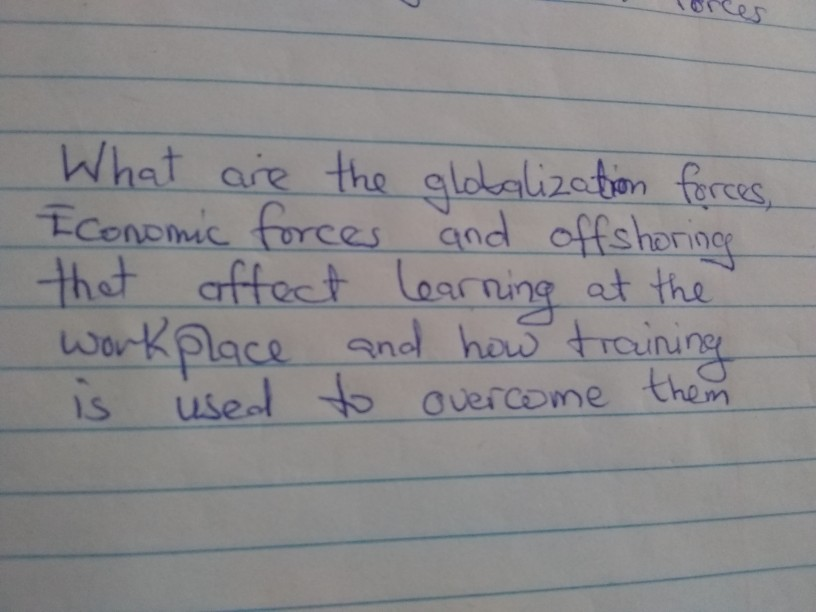 forces
What are the globalization forces,
Economic forces and offshoring
that affect learning at the
workplace and how training
is used to overcome them